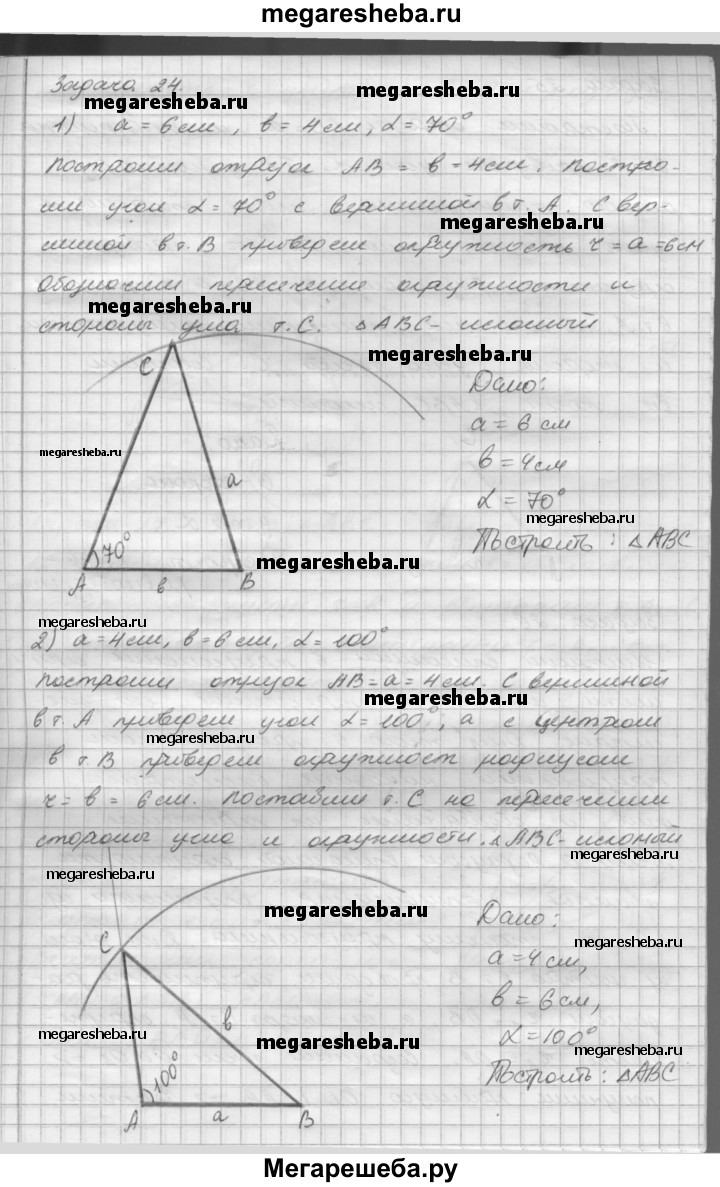 megaresheba.ru
Задача 24.
megaresheba.ru
megaresheba.ru
1) a = 6 см, в = 4 см, α = 70°
построим отрезок AB = в = 4 см. постро-
им угол α = 70° с вершиной в т. А. С вер-
megaresheba.ru
шиной в т. В проведем окружность r = a = 6 см
Обозначим пересечение окружности и
megaresheba.ru
стороны угла т. С. △ABC - искомый
megaresheba.ru
C
Дано:
a = 6 см
megaresheba.ru
в = 4 см
a
α = 70°
megaresheba.ru
Построить: △ABC
70°
megaresheba.ru
A
в
B
megaresheba.ru
2) a = 4 см, в = 6 см, α = 100°
построим отрезок AB = a = 4 см. С вершиной
megaresheba.ru
в т. А проведем угол α = 100°, а с центром
megaresheba.ru
в т. В проведем окружност радиусом
r = в = 6 см. поставим т. С на пересечении
стороны угла и окружности. △ABC - искомый
megaresheba.ru
megaresheba.ru
megaresheba.ru
Дано:
C
megaresheba.ru
a = 4 см,
в = 6 см,
в
megaresheba.ru
megaresheba.ru
α = 100°
megaresheba.ru
100°
Построить: △ABC
A
a
B
Мегарешеба.ру